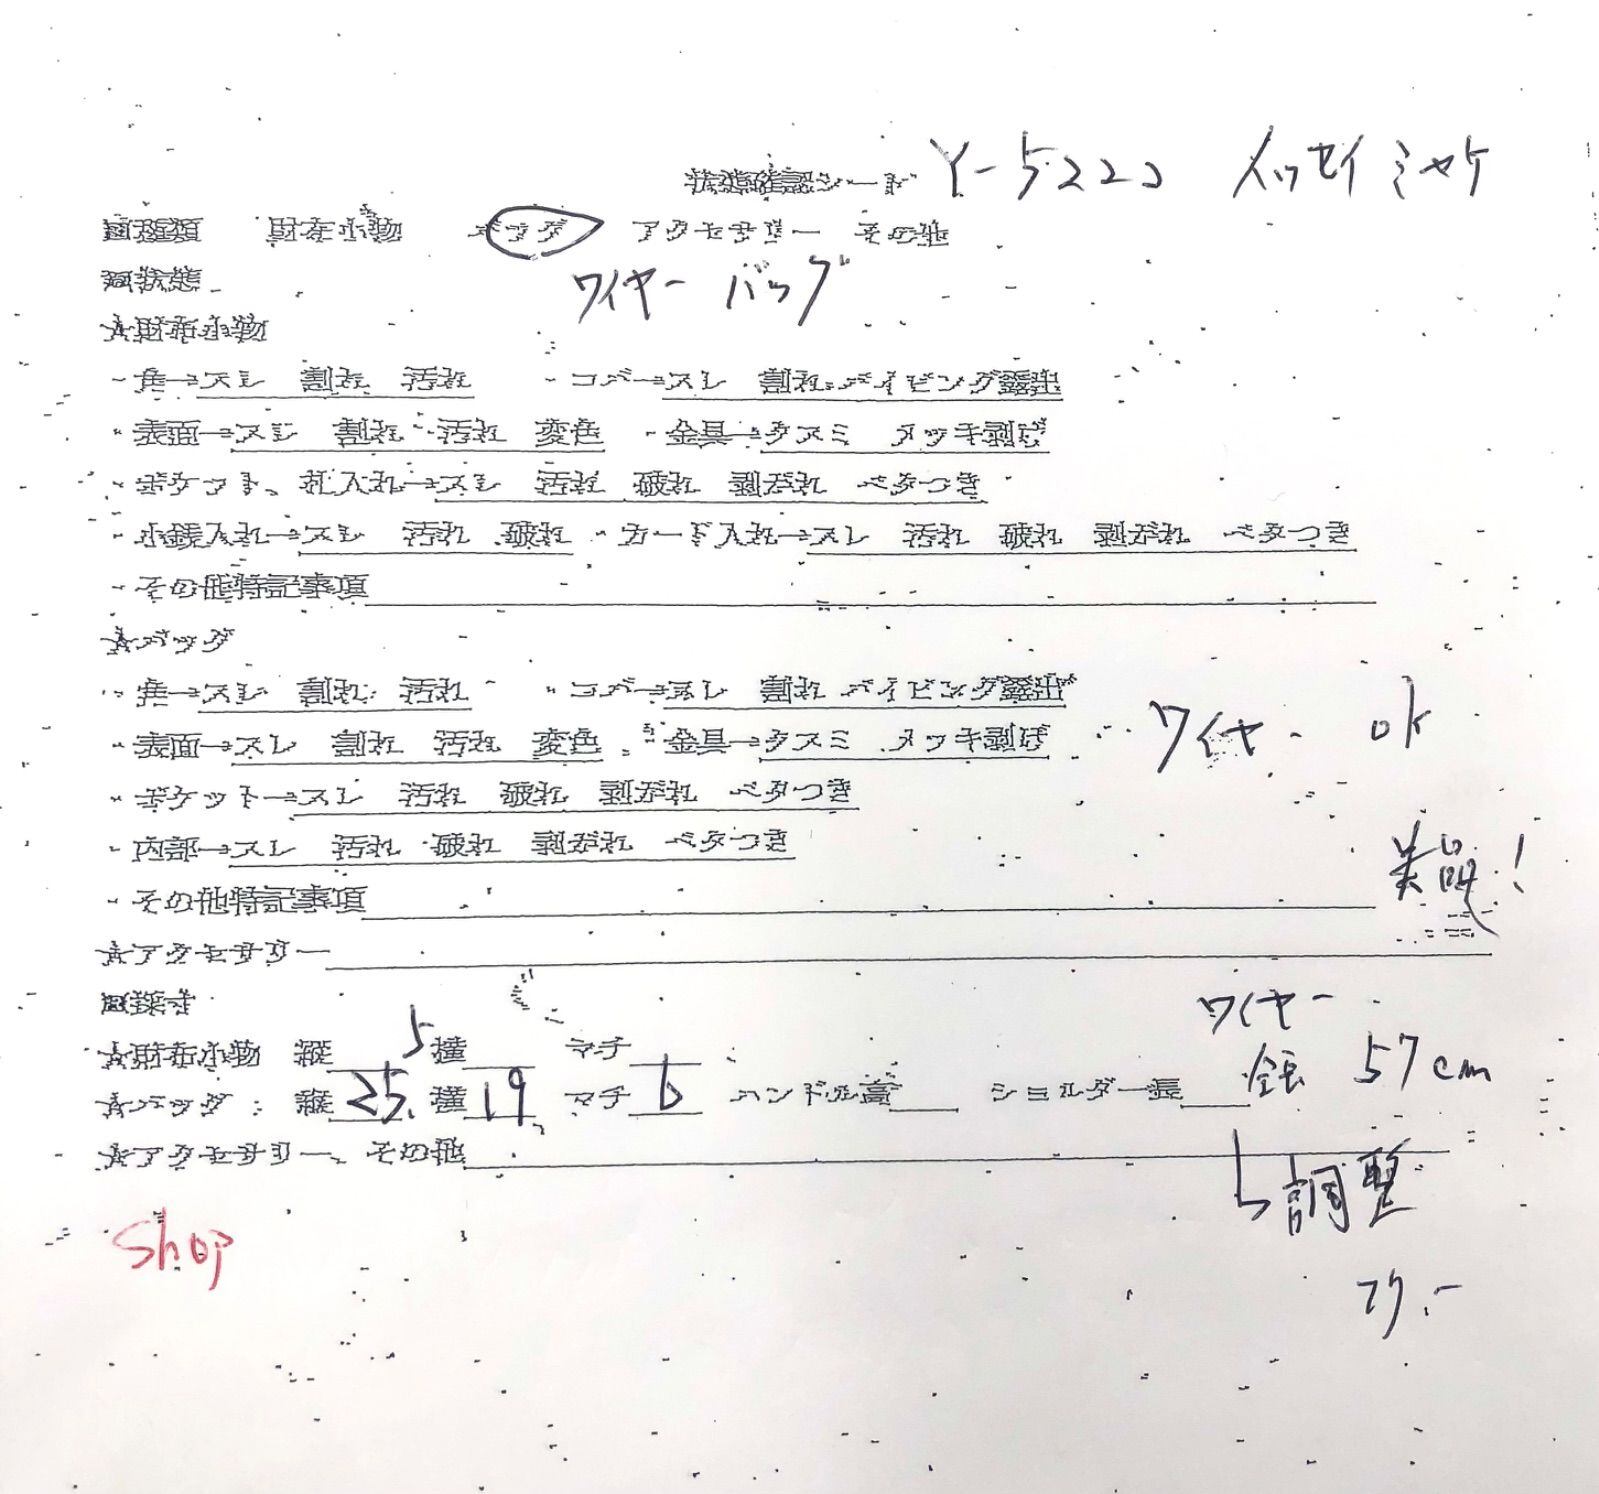 状態確認シート Y-5222 イッセイミヤケ
■種類 財布小物 バッグ アクセサリー その他
■状態 ワイヤーバッグ
★財布小物
・角→スレ 割れ 汚れ ・コバ→スレ 割れ パイピング露出
・表面→スレ 割れ 汚れ 変色 ・金具→クスミ メッキ剥げ
・ポケット、札入れ→スレ 汚れ 破れ 剥がれ ベタつき
・小銭入れ→スレ 汚れ 破れ ・カード入れ→スレ 汚れ 破れ 剥がれ ベタつき
・その他特記事項
★バッグ
・角→スレ 割れ 汚れ ・コバ→スレ 割れ パイピング露出
・表面→スレ 割れ 汚れ 変色 ・金具→クスミ メッキ剥げ ワイヤー ok
・ポケット→スレ 汚れ 破れ 剥がれ ベタつき
・内部→スレ 汚れ 破れ 剥がれ ベタつき
美品!
・その他特記事項
★アクセサリー
■採寸 ワイヤー
★財布小物 縦 5 横 マチ
★バッグ: 縦25.横19 マチ6 ハンドル高 ショルダー長 全長 57cm
★アクセサリー、その他
調整
フリー
Shop